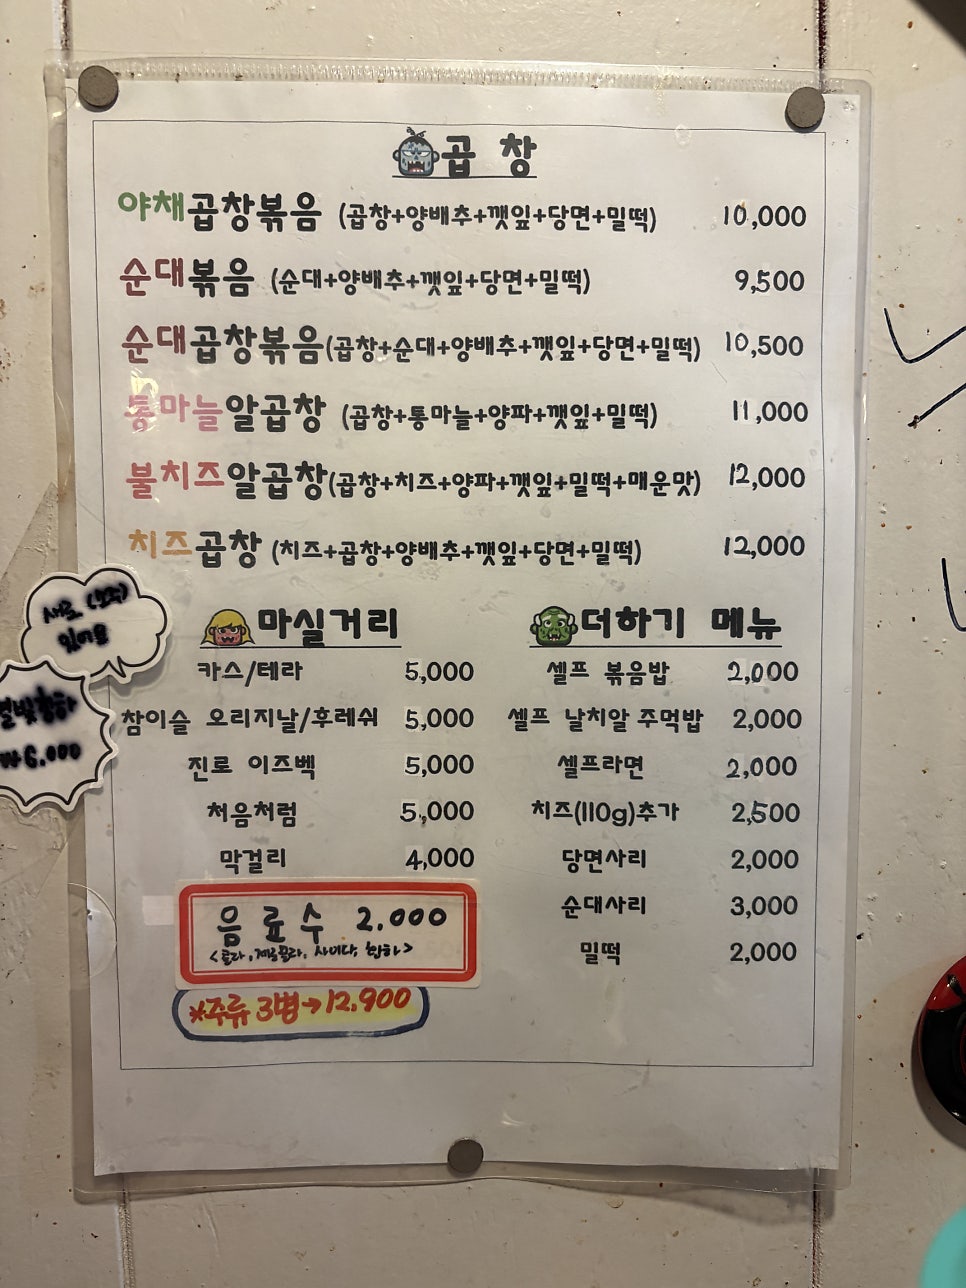 곱 창
야채곱창볶음 (곱창+양배추+깻잎+당면+밀떡) 10,000
순대볶음 (순대+양배추+깻잎+당면+밀떡) 9,500
순대곱창볶음(곱창+순대+양배추+깻잎+당면+밀떡) 10,500
통마늘알곱창 (곱창+통마늘+양파+깻잎+밀떡) 11,000
불치즈알곱창(곱창+치즈+양파+깻잎+밀떡+매운맛) 12,000
치즈곱창 (치즈+곱창+양배추+깻잎+당면+밀떡) 12,000
마실거리
카스/테라 5,000
참이슬 오리지날/후레쉬 5,000
진로 이즈백 5,000
처음처럼 5,000
막걸리 4,000
음료수 2.000
<콜라, 제로콜라, 사이다, 환타>
※주류 3병→12,900
더하기 메뉴
셀프 볶음밥 2,000
셀프 날치알 주먹밥 2,000
셀프라면 2,000
치즈(110g)추가 2,500
당면사리 2,000
순대사리 3,000
밀떡 2,000
새로
있어요
별빛청하
₩6.000